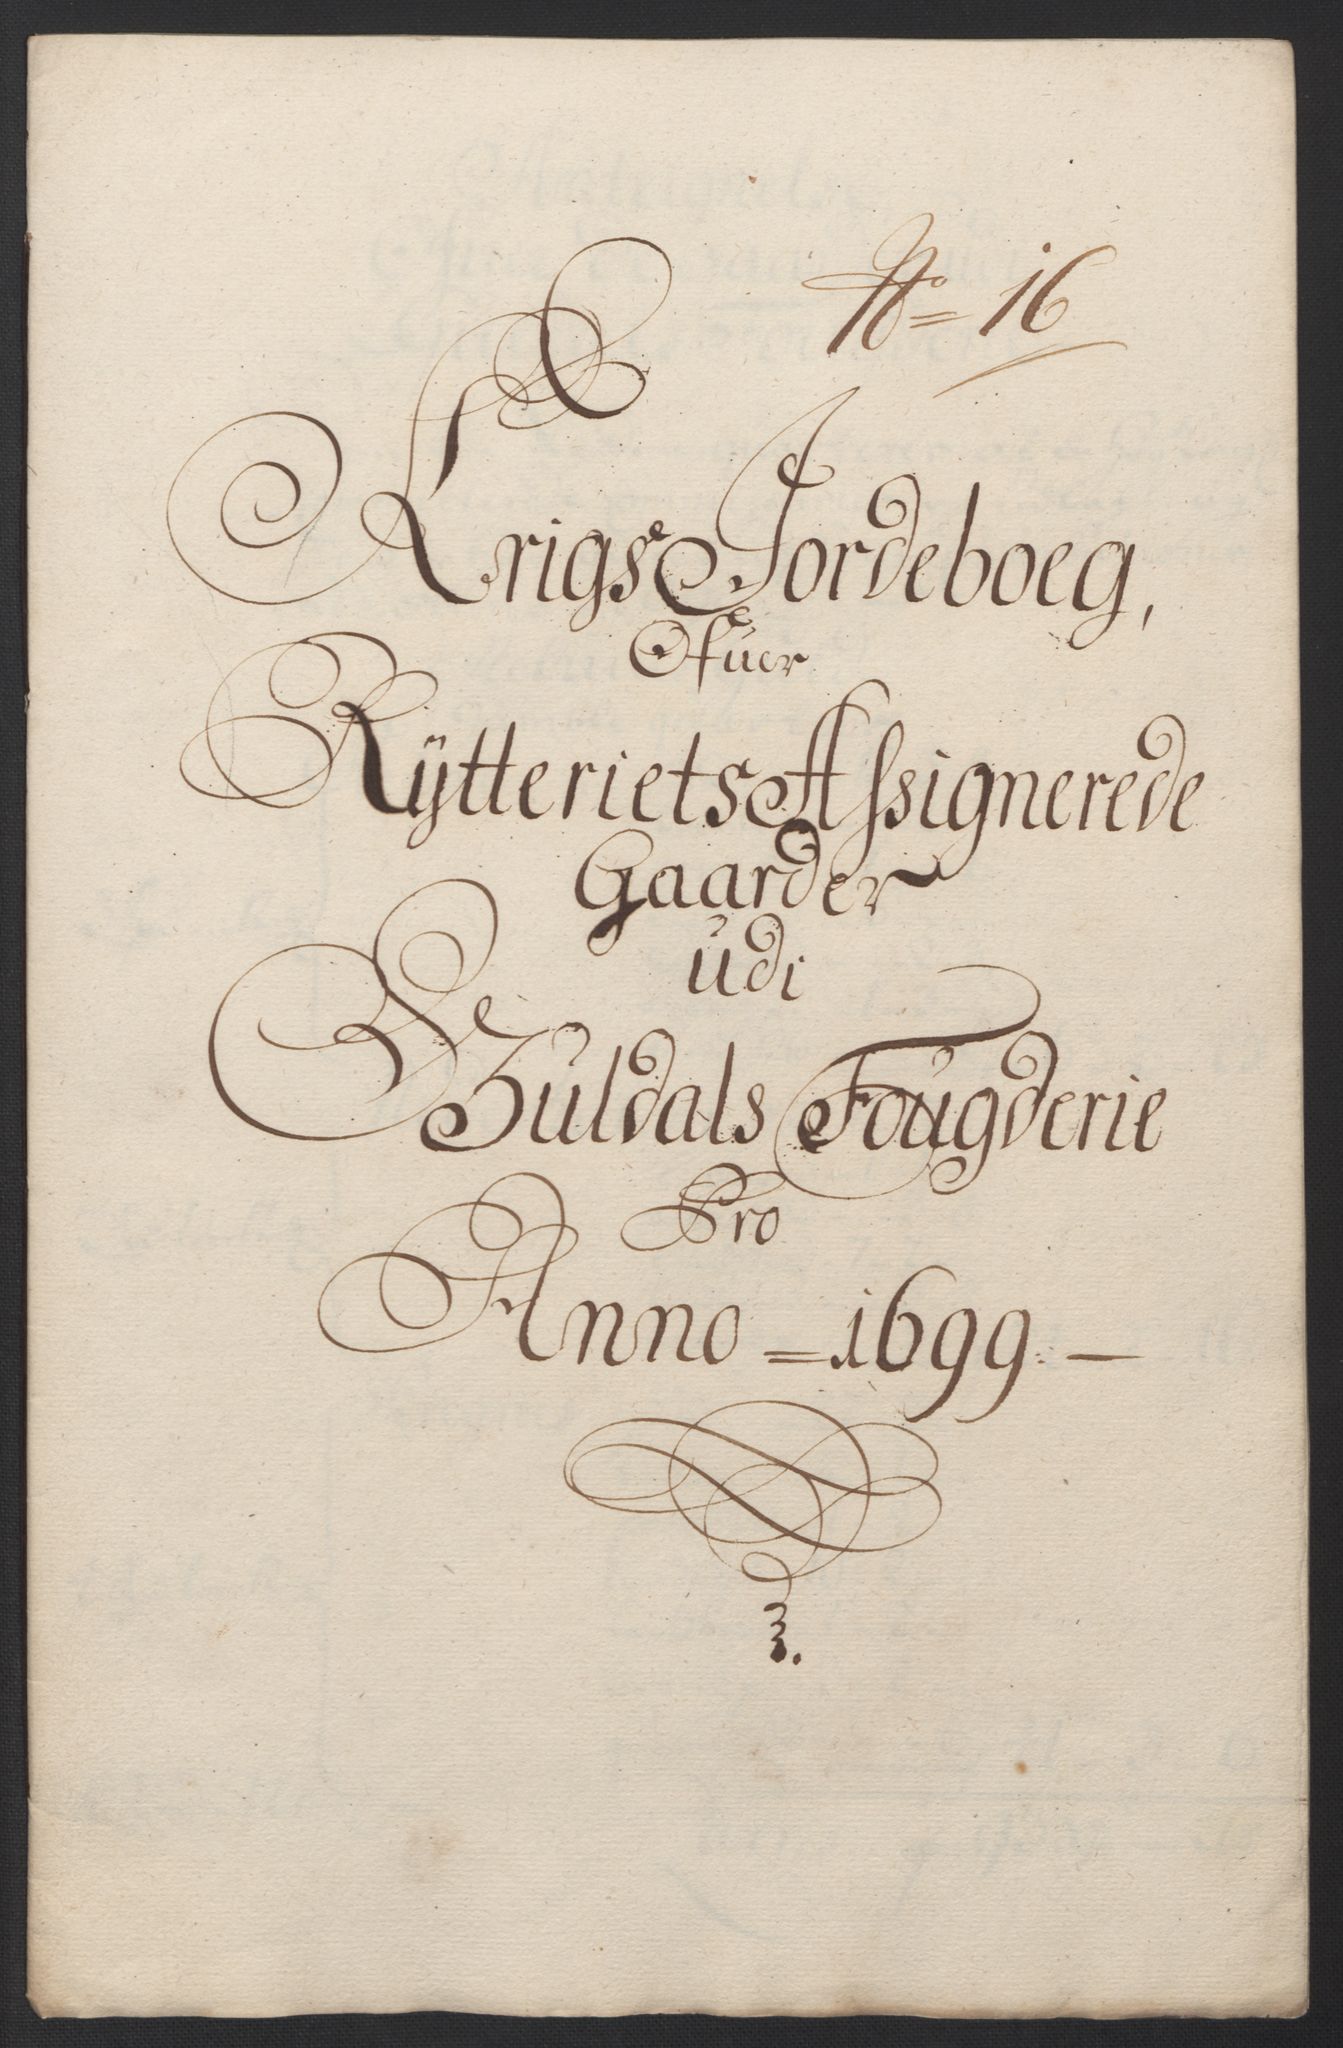 No = 16
Krigs Jordeboeg,
Ofuer
Rÿtteriets Assignerede
Gaarder
udi
Guldals Fougderie
Pro
Anno = 1699. —